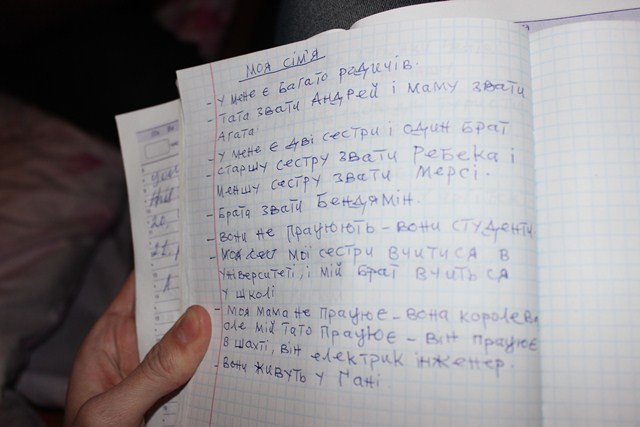 Моя сім'я
- У мене є багато родичів.
- Тата звати Андрей і маму звати
Агата.
- У мене є дві сестри і один брат
- старшу сестру звати Ребека і
меншу сестру звати Мерсі.
- Брата звати Бендямін.
- Вони не працюють - вони студенти
- Мої сестри вчитися в
університеті, і мій брат вчиться
у школі
- Моя мама не працює - вона королева
але мій тато працює - він працює
в шахті, він електрик інженер.
- Вони живуть у Гані